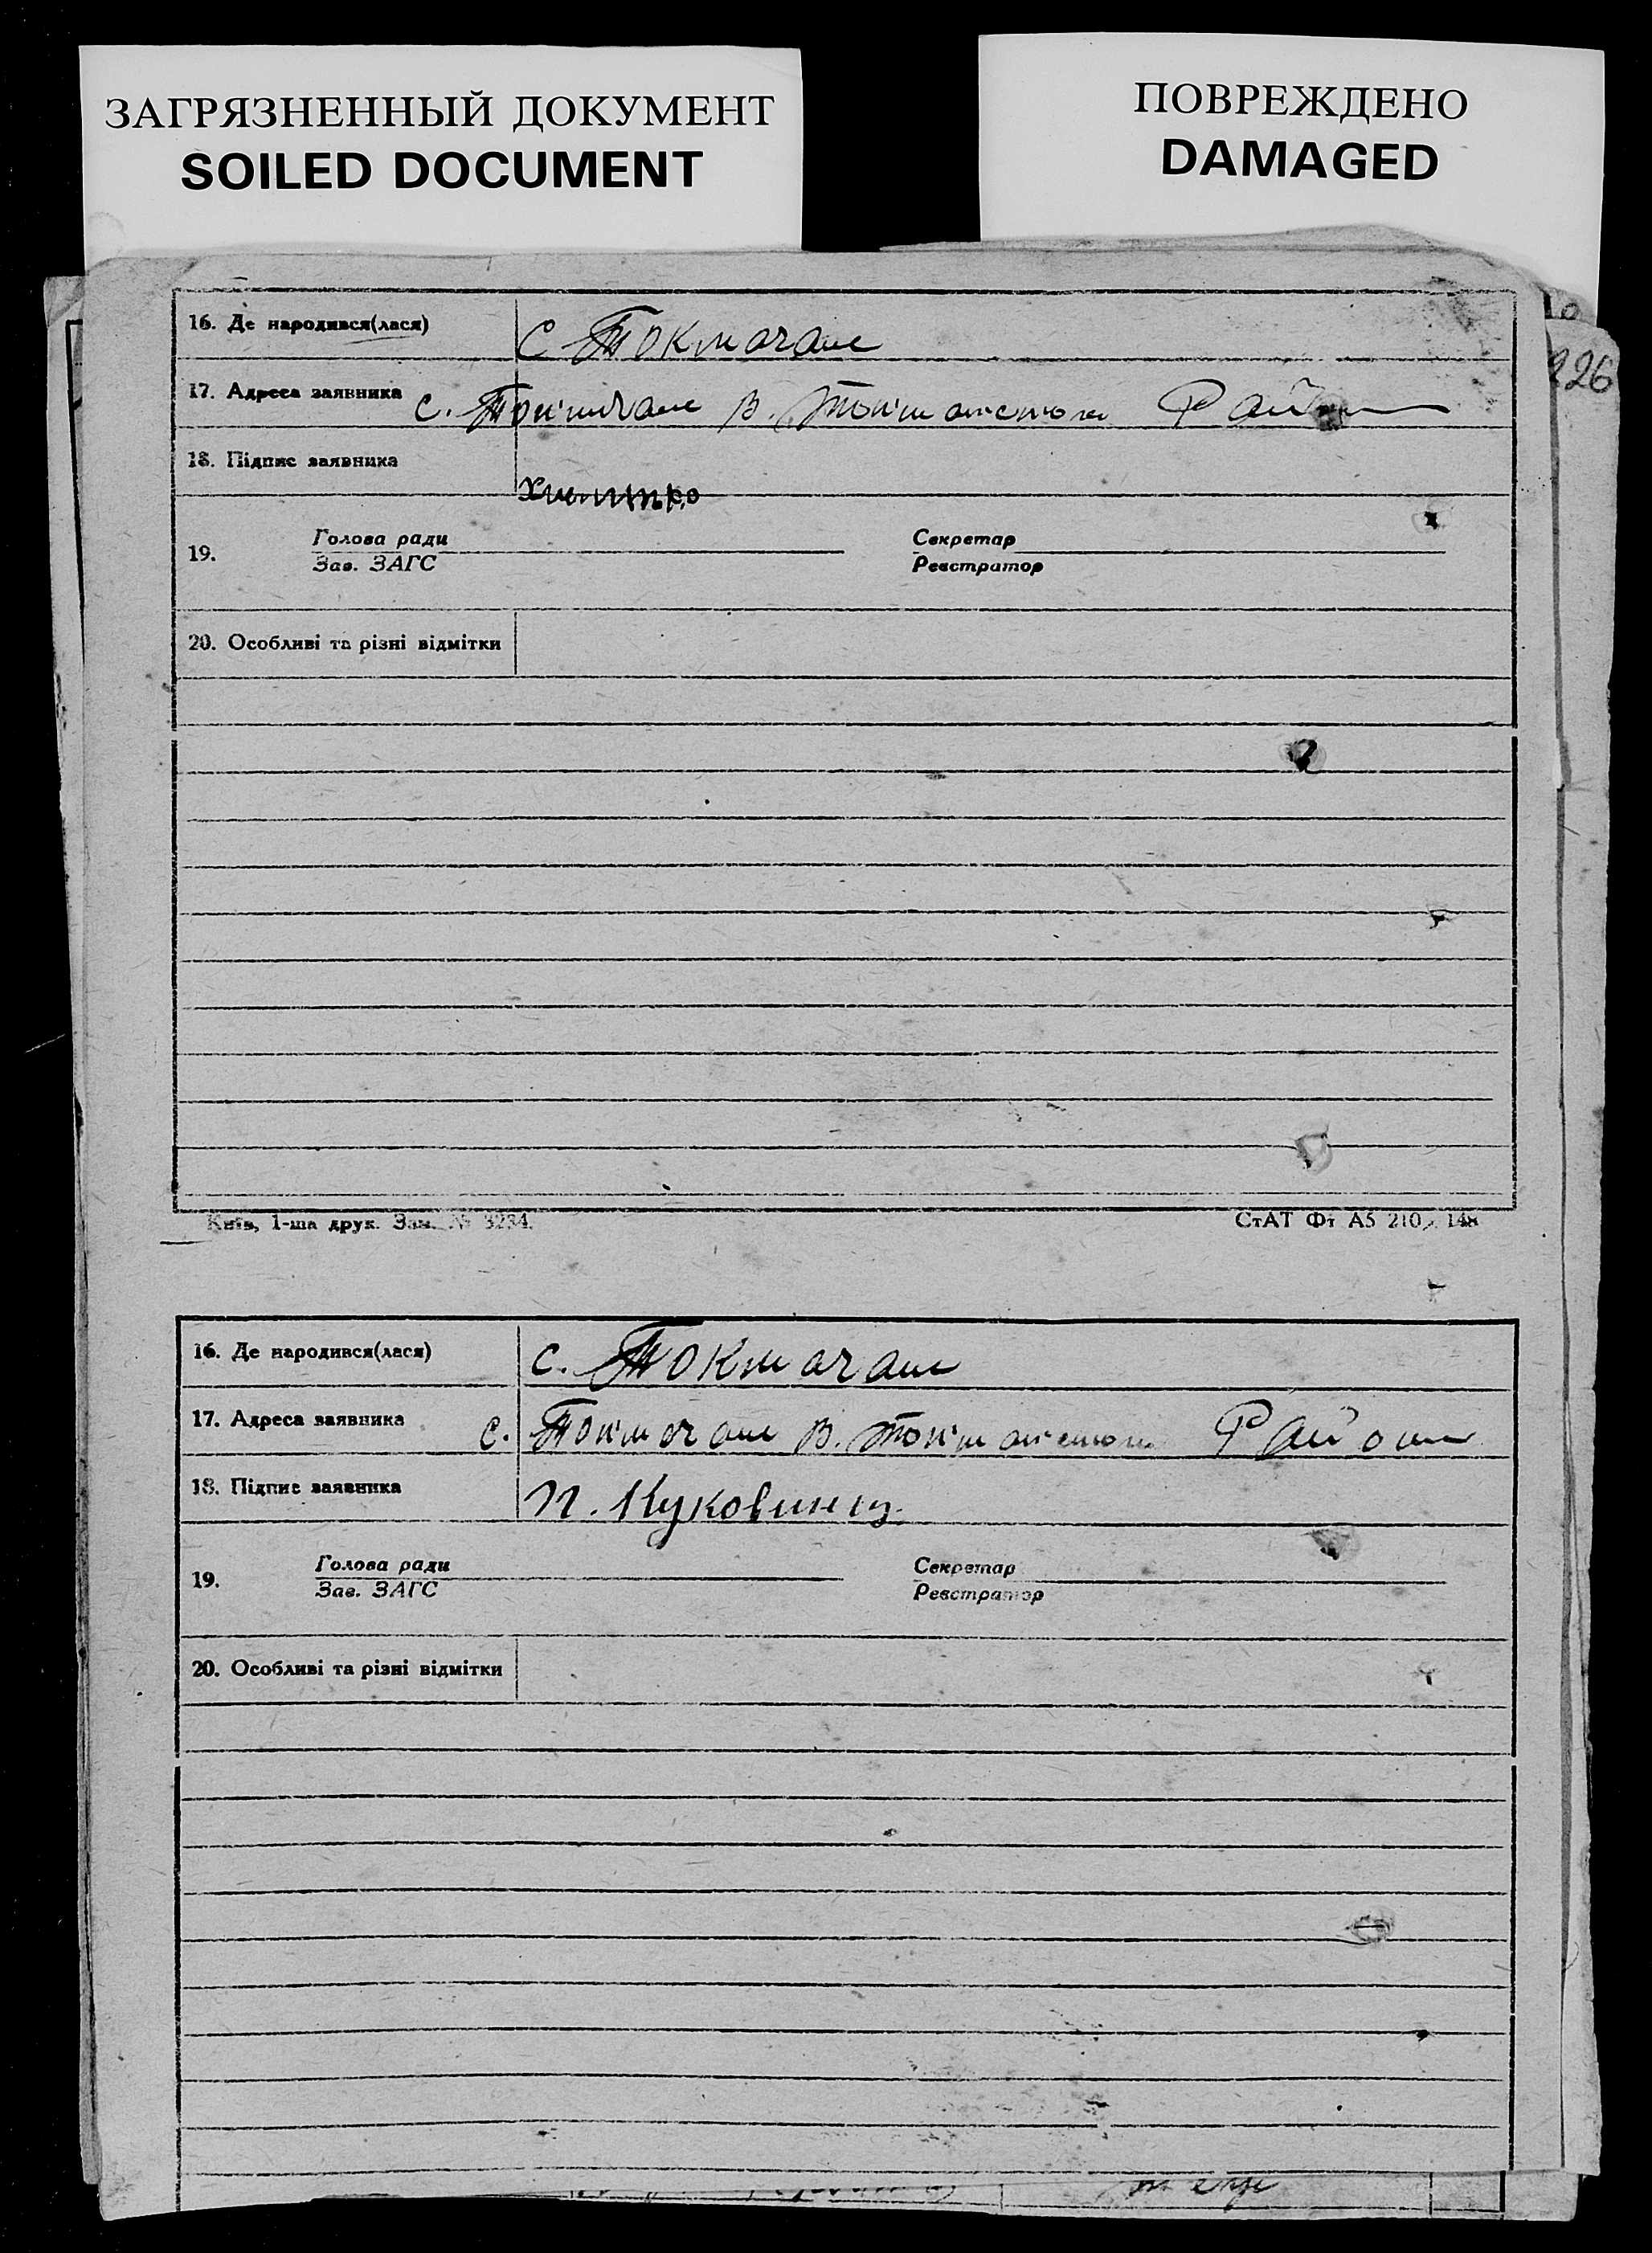 ЗАГРЯЗНЕННЫЙ ДОКУМЕНТ
SOILED DOCUMENT
ПОВРЕЖДЕНО
DAMAGED
226
16. Де народився(лася) с Токмачан
17. Адреса заявника с. Токмачан В. Токмакського Район
18. Підпис заявника
19. Голова ради Секретар
Зав. ЗАГС Реєстратор
20. Особливі та різні відмітки
Київ, 1-ша друк. Зам. № 3234. СтАТ Фт А5 210 148
16. Де народився(лася) с. Токмачан
17. Адреса заявника с. Токмачан В. Токмакського Район
18. Підпис заявника П. Куковинец
19. Голова ради Секретар
Зав. ЗАГС Реєстратор
20. Особливі та різні відмітки